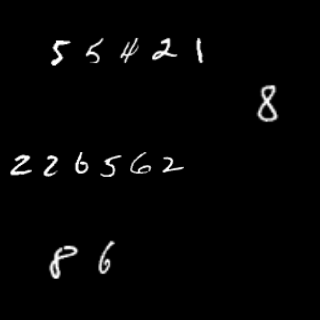 55421
8
226562
86